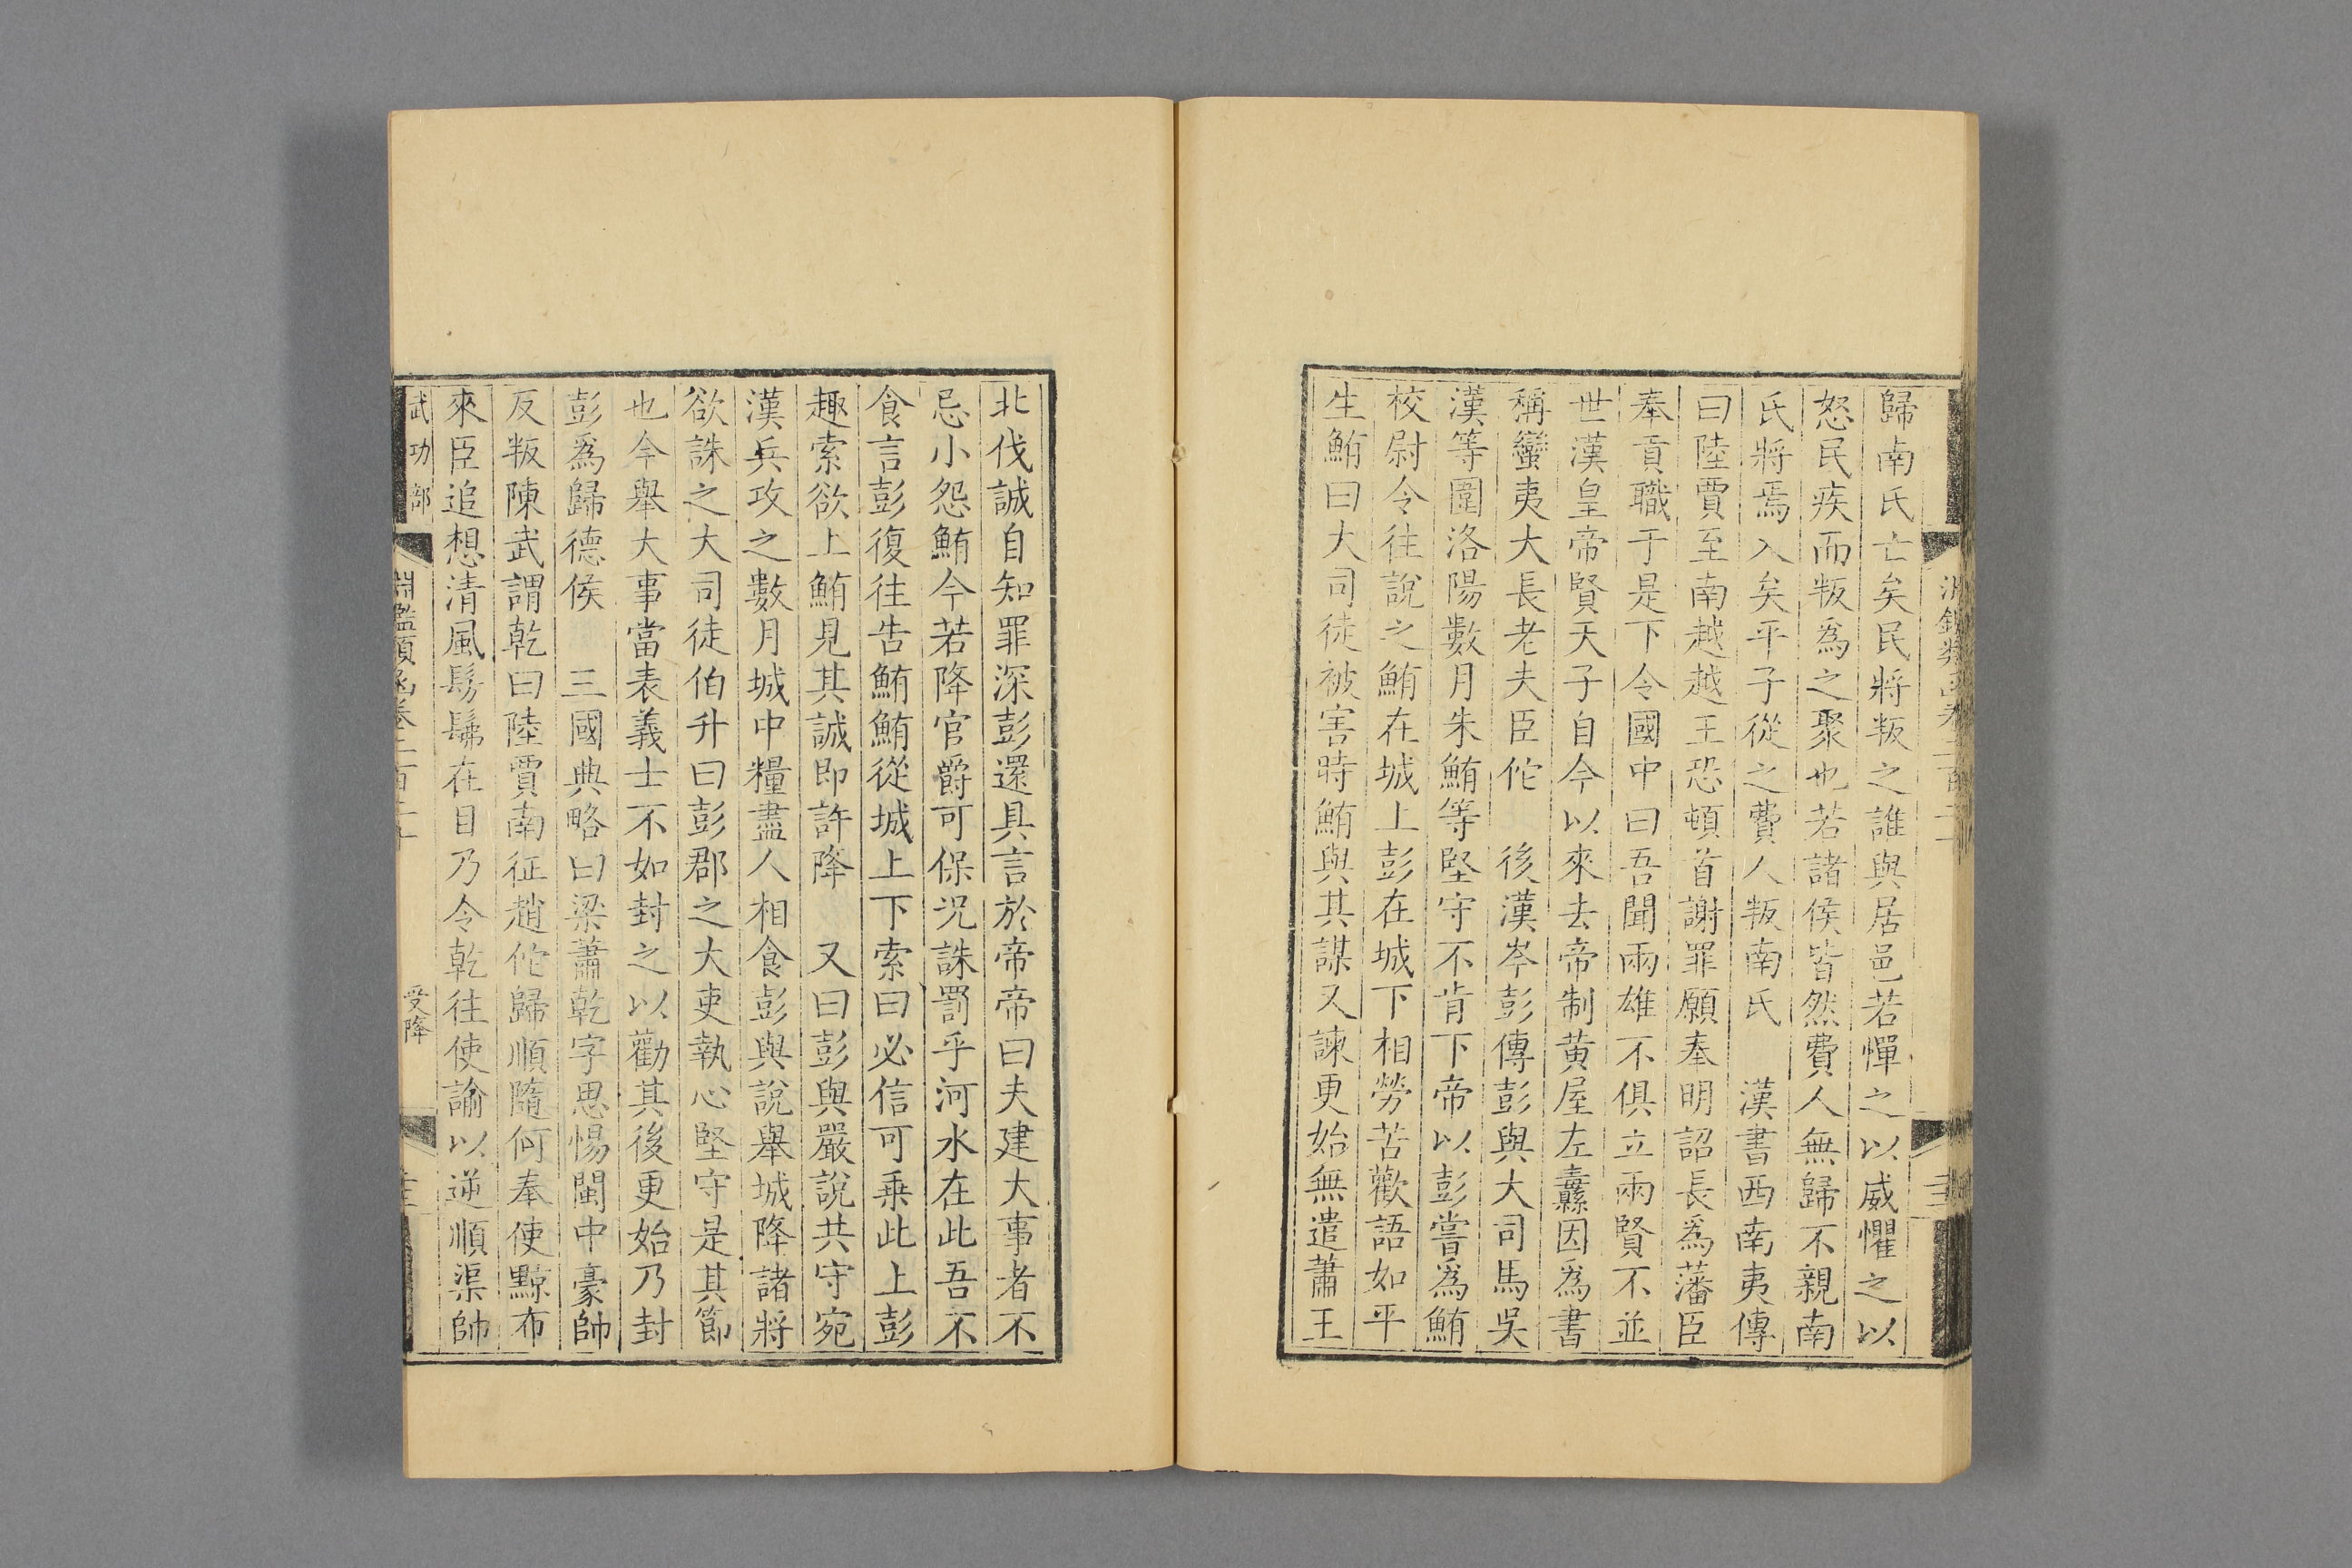 歸南氏亡矣民將叛之誰與居邑若憚之以威懼之以
怒民疾而叛爲之聚也若諸侯皆然費人無歸不親南
氏將焉入矣平子從之費人叛南氏　漢書西南夷傳
曰陸賈至南越越王恐頓首謝罪願奉明詔長爲藩臣
奉貢職于是下令國中曰吾聞兩雄不俱立兩賢不並
世漢皇帝賢天子自今以來去帝制黄屋左纛因爲書
稱蠻夷大長老夫臣佗　後漢岑彭傳彭與大司馬吳
漢等圍洛陽數月朱鮪等堅守不肯下帝以彭嘗爲鮪
校尉令往說之鮪在城上彭在城下相勞苦歡語如平
生鮪曰大司徒被害時鮪與其謀又諫更始無遣蕭王
北伐誠自知罪深彭還具言於帝帝曰夫建大事者不
忌小怨鮪今若降官爵可保况誅罰乎河水在此吾不
食言彭復往告鮪鮪從城上下索曰必信可乗此上彭
趣索欲上鮪見其誠即許降　又曰彭與嚴說共守宛
漢兵攻之數月城中糧盡人相食彭與說舉城降諸將
欲誅之大司徒伯升曰彭郡之大吏執心堅守是其節
也今舉大事當表義士不如封之以勸其後更始乃封
彭爲歸德侯　三國典略曰梁蕭乾字思惕閩中豪帥
反叛陳武謂乾曰陸賈南征趙佗歸順隨何奉使黥布
來臣追想清風髣髴在目乃令乾往使諭以逆順渠帥
武功部
淵鑑類函卷二百二十
受降